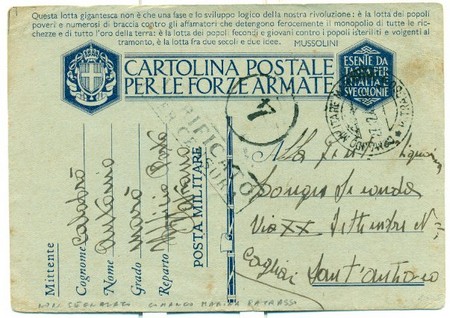 Questa lotta gigantesca non è che una fase e lo sviluppo logico della nostra rivoluzione; è la lotta dei popoli
poveri e numerosi di braccia contro gli affamatori che detengono ferocemente il monopolio di tutte le ric-
chezze e di tutto l'oro della terra: è la lotta dei popoli fecondi e giovani contro i popoli isteriliti e volgenti al
tramonto, è la lotta fra due secoli e due idee. MUSSOLINI
CARTOLINA POSTALE
PER LE FORZE ARMATE
ESENTE DA
TASSA PER
L'ITALIA E
SVE COLONIE
VERIFICATO
47
Mittente
Cognome
Nome Antonio
Grado
Reparto
POSTA MILITARE
Alla
Via XX Settembre N.
Cagliari Sant'Antioco
NON SEGNALATO COMANDO MARINA PATRASSO